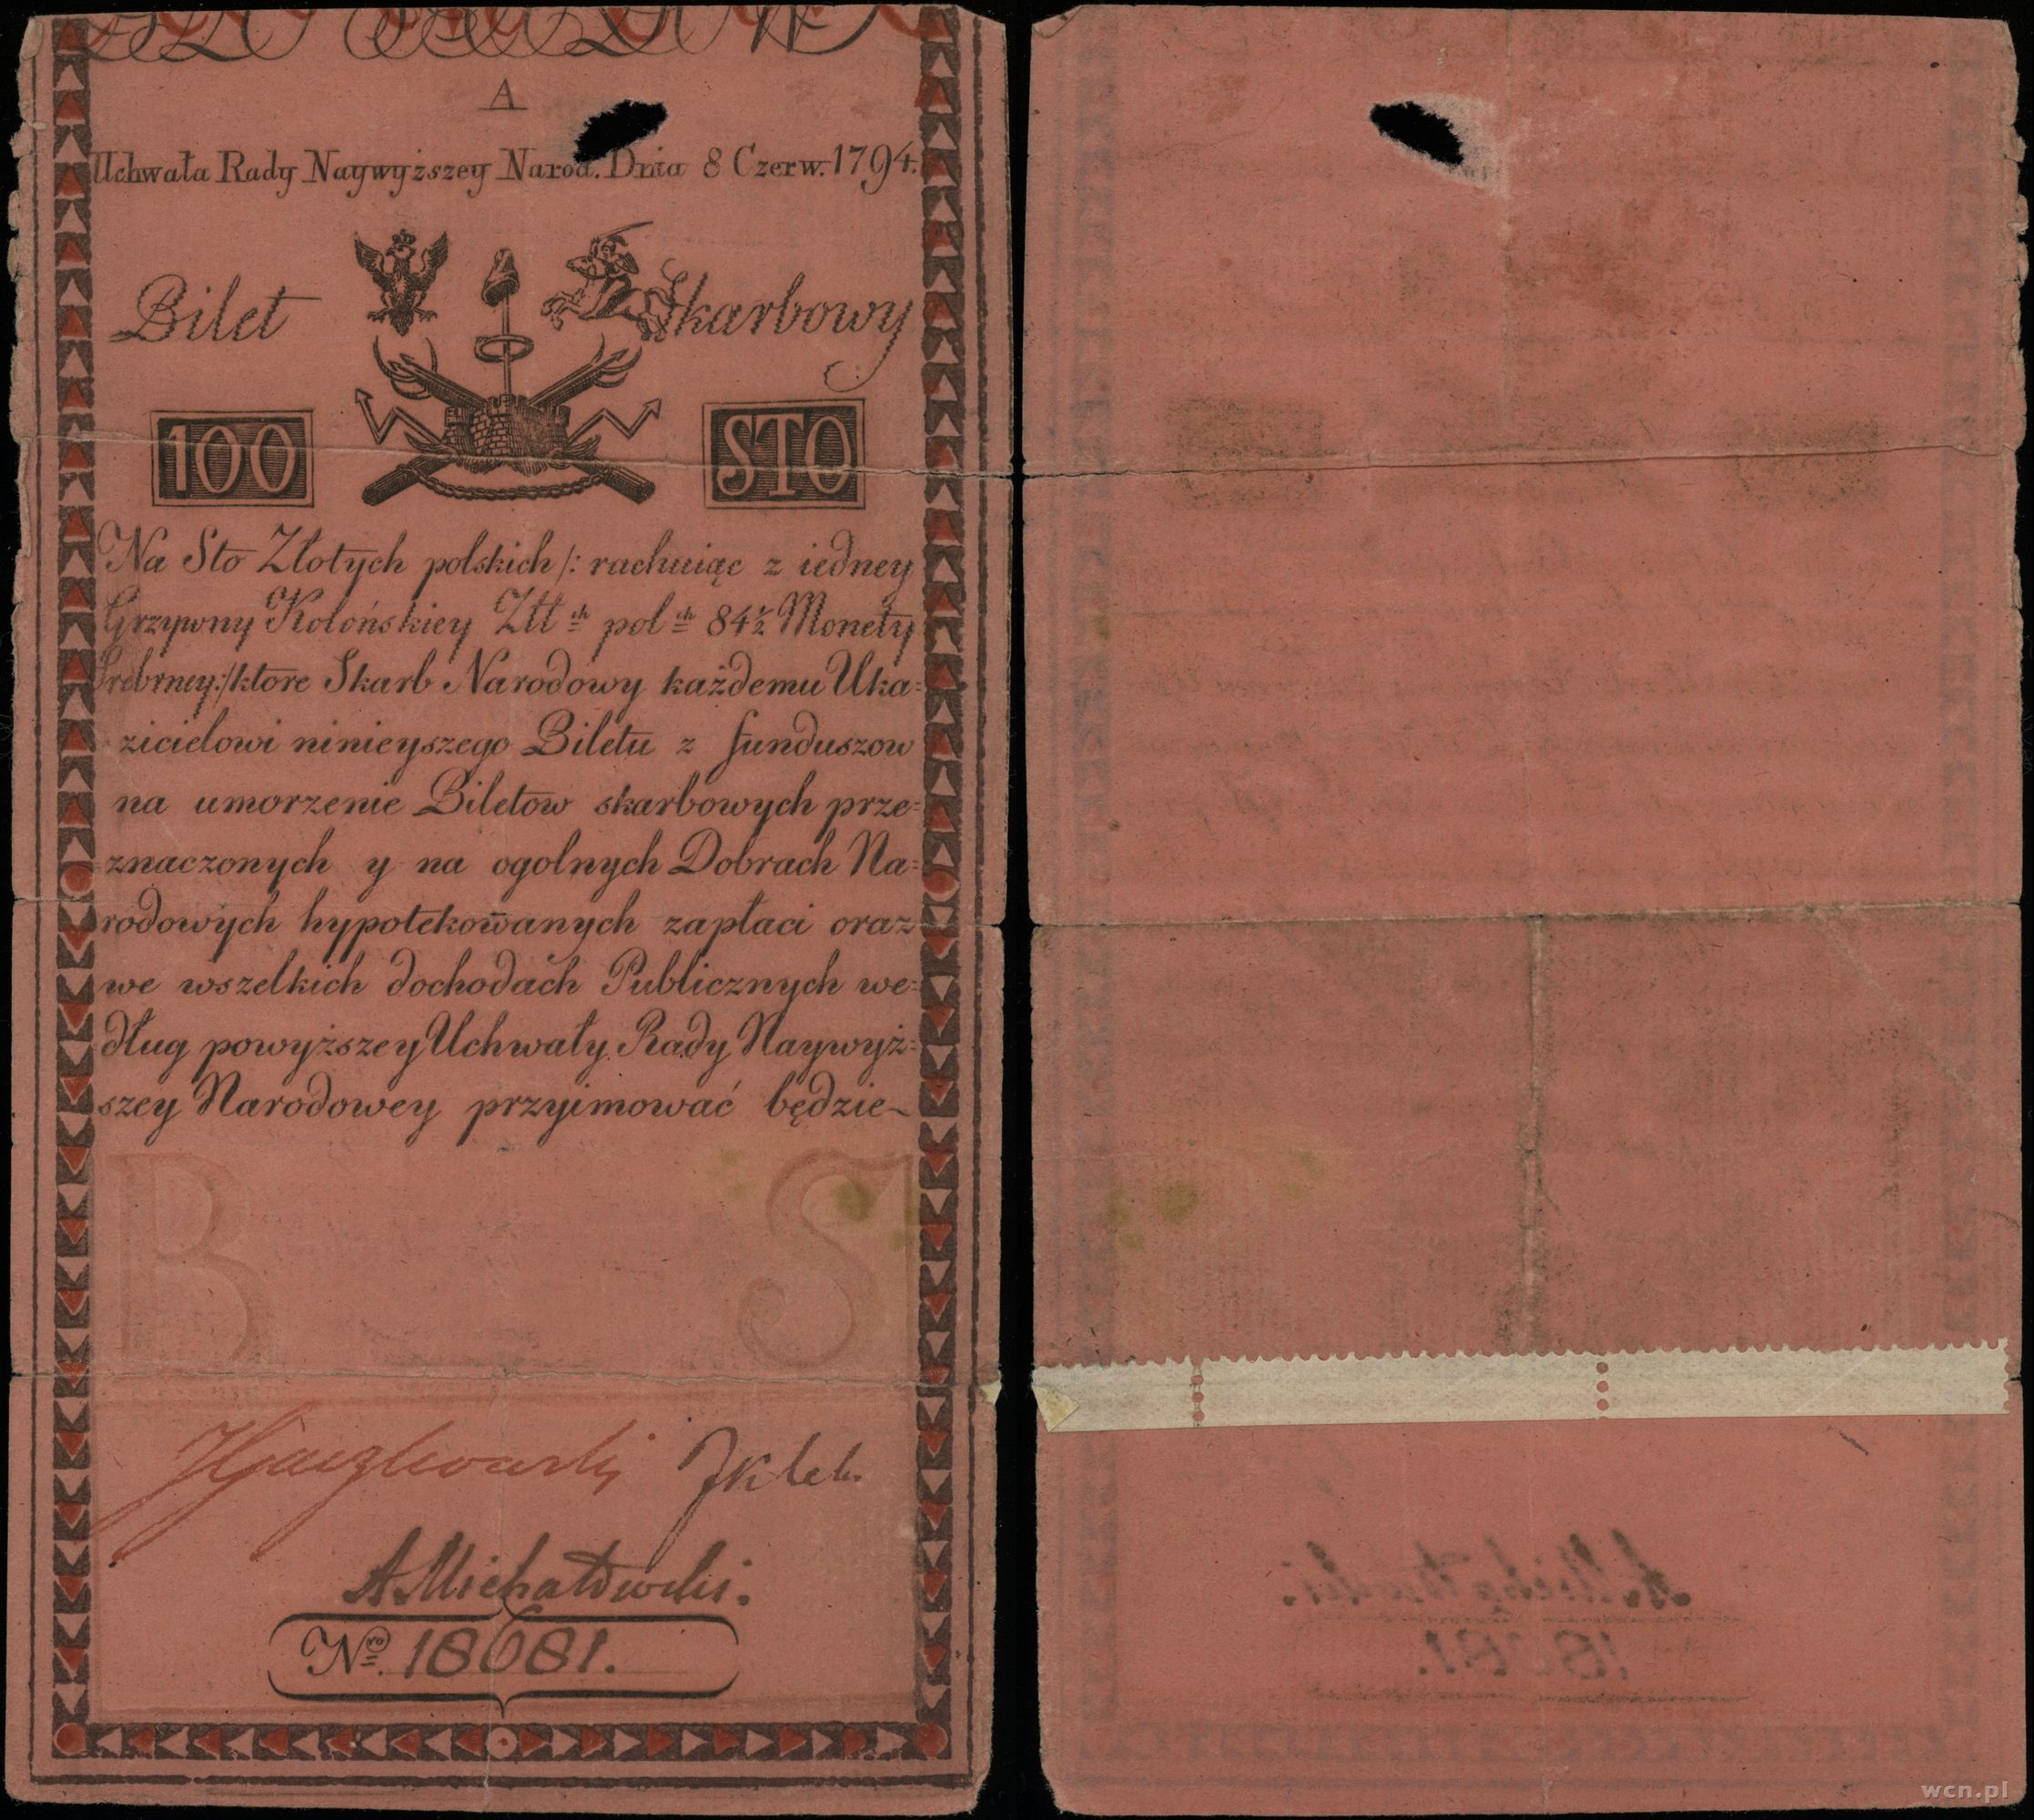 A
Uchwała Rady Naywyższey Narod. Dnia 8 Czerw. 1794.
Bilet Skarbowy
100 STO
Na Sto Złotych polskich /: rachuiąc z iedney
Grzywny Kolońskiey Złł ch pol ch 84 1/2 Monety
Srebrney:/ ktore Skarb Narodowy każdemu Uka=
zicielowi ninieyszego Biletu z funduszow
na umorzenie Biletow skarbowych prze=
znaczonych y na ogolnych Dobrach Na=
rodowych hypotekowanych zapłaci oraz
we wszelkich dochodach Publicznych we=
dług powyższey Uchwały Rady Naywyż=
szey Narodowey przyimować będzie~
B S
A Michałowski.
Nro. 18681.
wcn.pl